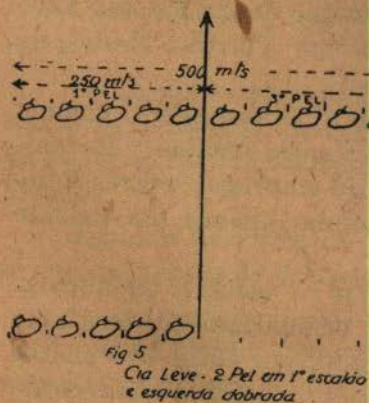 500 m/s
250 m/s
1º PEL
3º PEL
Fig 5
Cia Leve - 2 Pel em 1º escalão
e esquerda dobrada